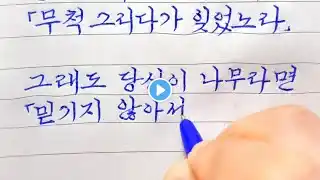 「무척 그리다가 잊었노라」
그래도 당신이 나무라면
「믿기지 않아서